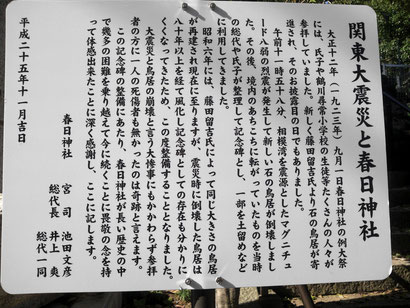 関東大震災と春日神社
大正十二年（一九二三年）九月一日春日神社の例大祭
には、氏子や鶴川尋常小学校の生徒等たくさんの人々が
参拝していました。新しく藤田留吉氏より石の鳥居が寄
進され、そのお披露目の日でもありました。
午前十一時五十八分、相模湾を震源としたマグニチュ
ード八弱の烈震が発生して新しい石の鳥居が倒壊しまし
た。その後、境内のあちこちに転がっていたものを当時
の総代や氏子が整理して記念碑とし、一部を土留めなど
に利用してきました。
昭和六年には、藤田留吉氏によって同じ大きさの鳥居
が再建され現在に至りますが、震災時に倒壊した鳥居は
八十年以上を経て風化し記念碑としての存在も分かりに
くくなってきたため、この度整備することとなりました。
大震災と鳥居の崩壊と言う大惨事にもかかわらず参拝
者の方に一人の死傷者も無かったのは奇跡と言えます。
この記念碑の整備にあたり、春日神社が長い歴史の中
で幾多の困難を乗り越えて今に続くことに畏敬の念を持
って体感出来たことに深く感謝し、ここに記します。
春日神社　宮司　池田文彦
総代長　井上爽
総代一同
平成二十五年十一月吉日